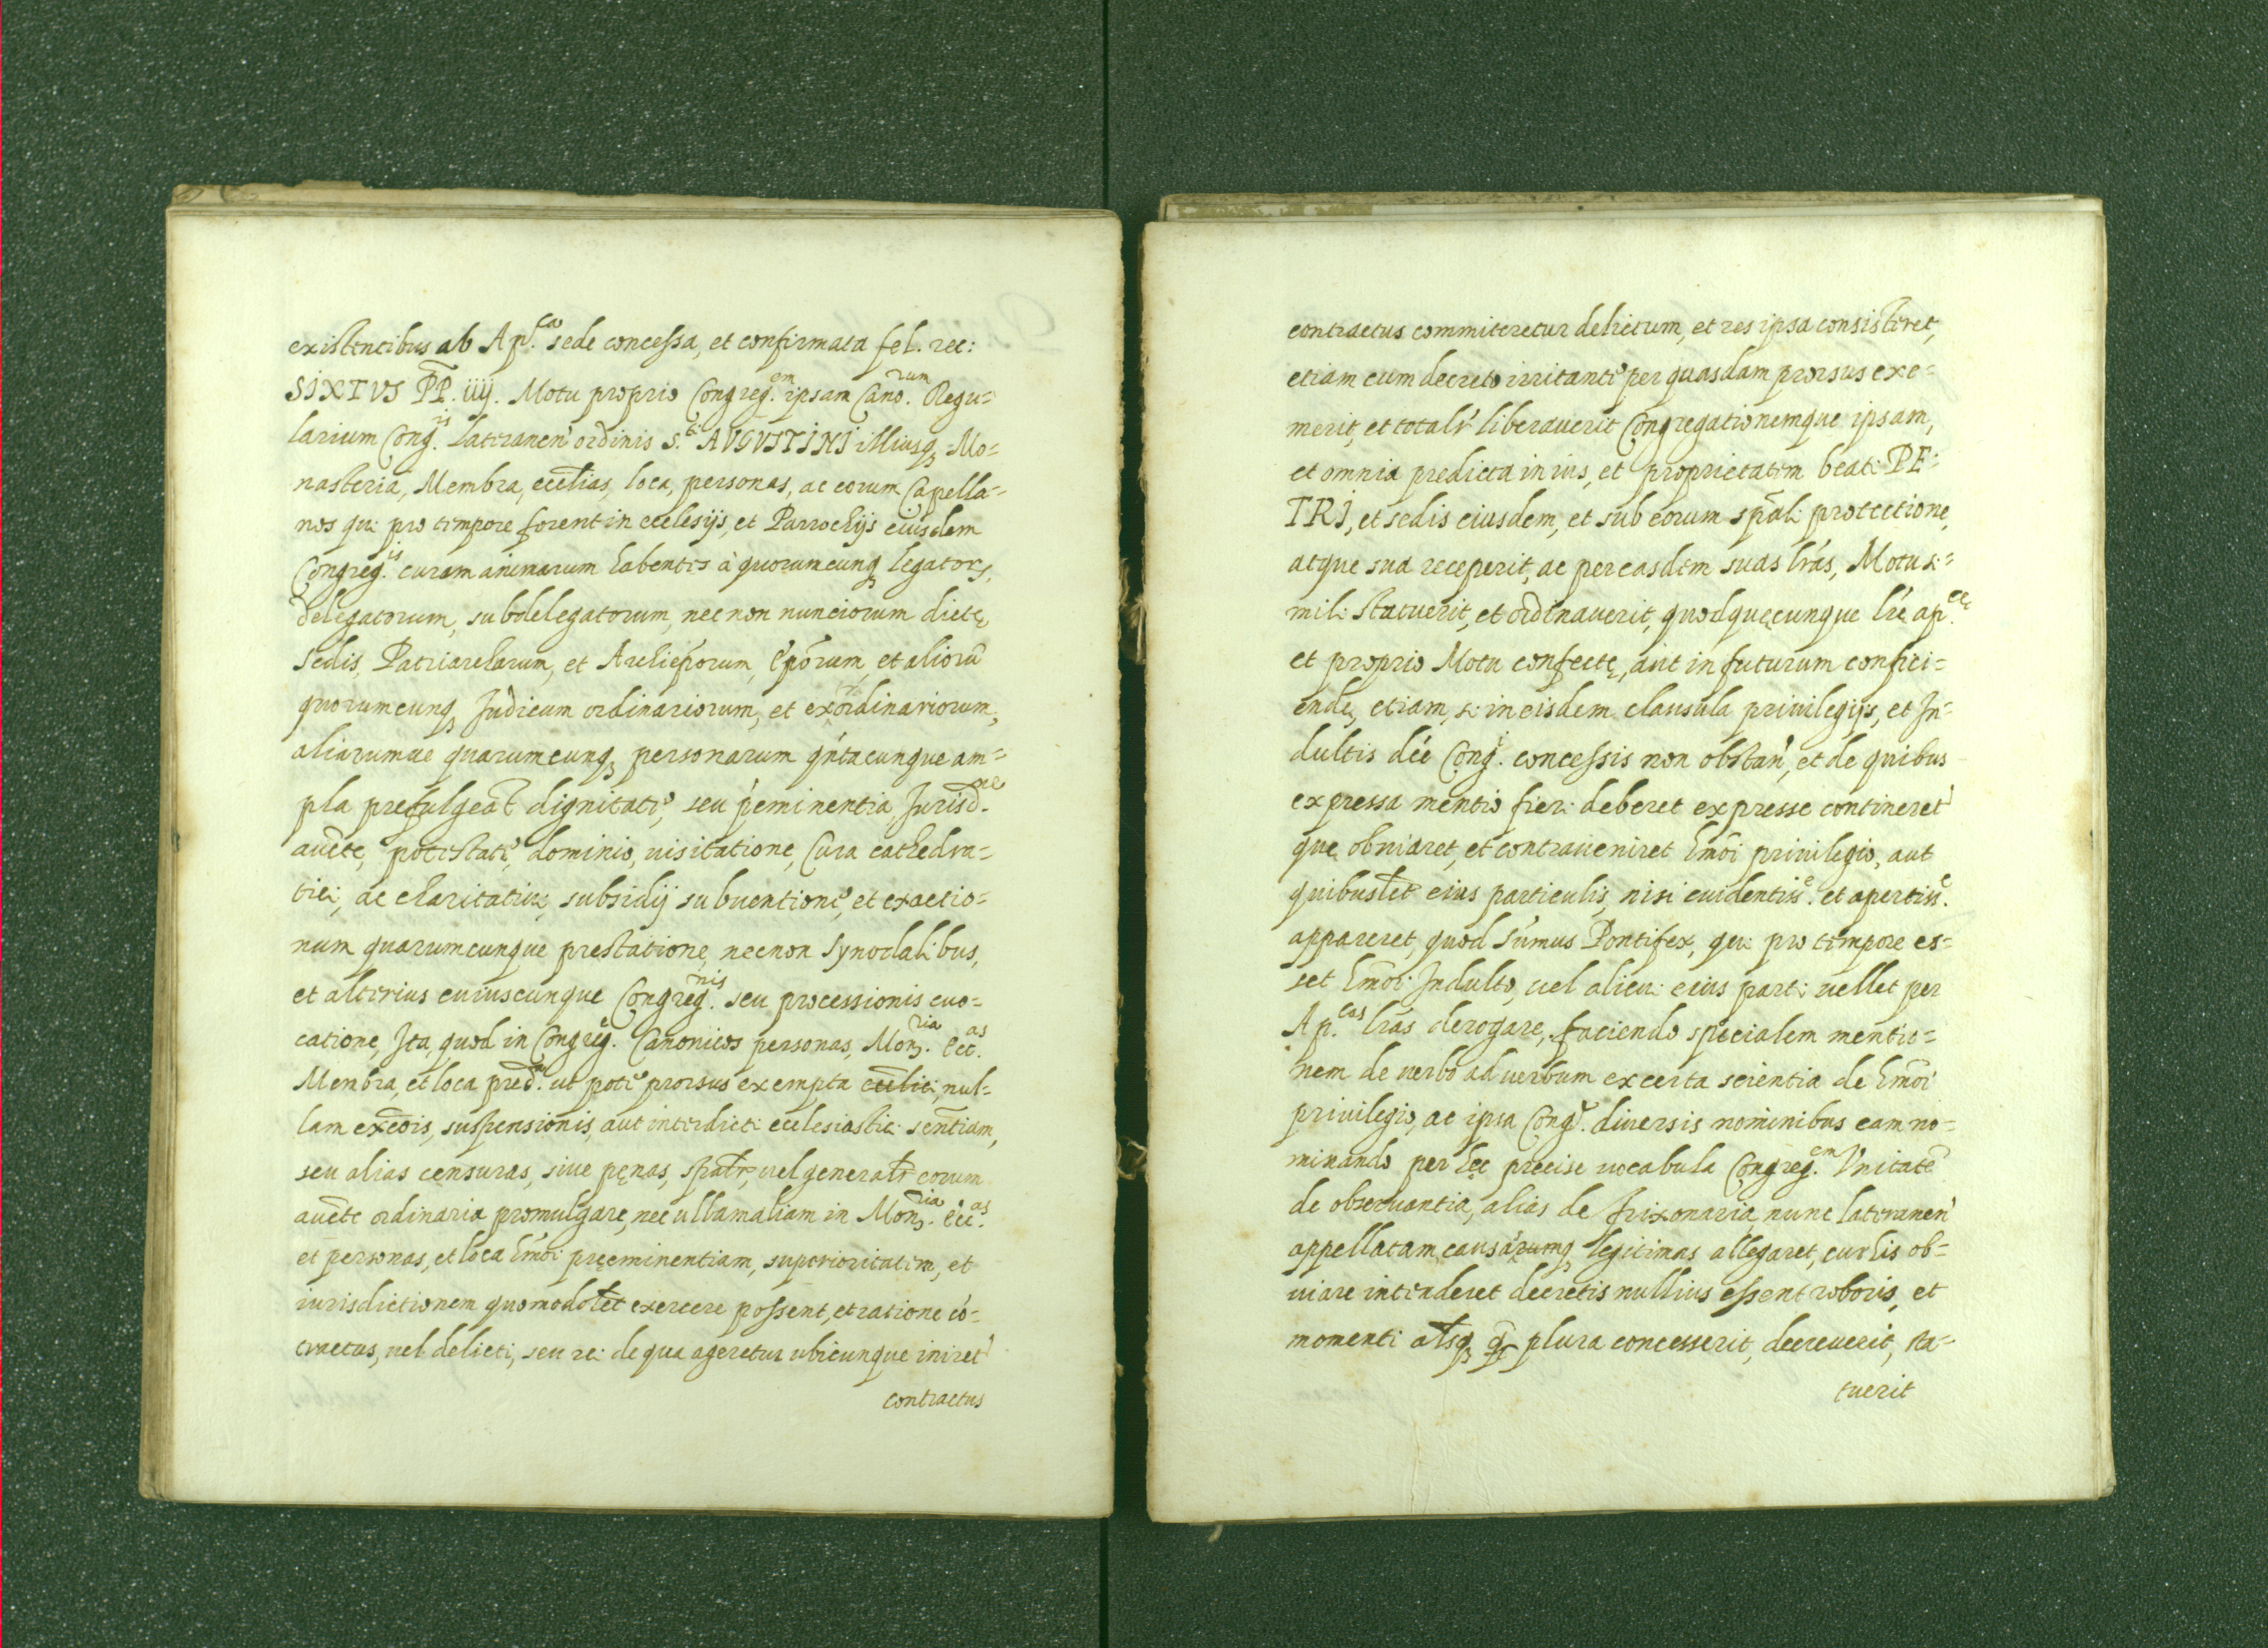 existentibus ab Ap.ca sede concessa, et confirmata fel. rec:
SIXTVS PP. iiij. Motu proprio Congreg.em ipsam Cano.rum Regu=
larium Cong.is lateranen' ordinis s.ti AVGVSTINI illiusq; Mo=
nasteria, Membra, ecclias, loca, personas, ac eorum Capella=
nos qui pro tempore forent in ecclesijs, et Parrochijs eiusdem
Congreg.is curam animarum habentes à quorumcunq; legators,
delegatorum, subdelegatorum, nec non nunciorum dictę
sedis, Patriarcharum, et Archiepōrum, Epōrum et aliorū
quorumcunq; Judicum ordinariorum, et exordinariorum,
aliarumue quarumcunq; personarum qn'tacunque am=
pla prefulgeāt dignitate, seu p'eminentia, Jurisd.ne
aucte, potestate, dominio, uisitatione, Cura cathedra=
tici, ac charitatiui subsidij subuentione, et exactio=
num quarumcunque prestatione, necnon synodalibus,
et alterius cuiuscunque Congreg.nis seu processionis euo=
catione, Ita, quod in Congreg.e Canonicos personas, Mon.ria Ecc.as
Membra, et loca pred.a ut pote prorsus exempta ecclici, nul=
lam excōis, suspensionis, aut interdicti ecclesiastici sentiam,
seu alias censuras, siue pęnas, spāłr, uel generałr eorum
aucte ordinaria promulgare, nec ullam aliam in Mon.ria Ecc.as
et personas, et loca hmōi pręeminentiam, superioritatem, et
iurisdictionem quomodolet exercere possent, et ratione cō=
tractus, uel delicti, seu rei de qua ageretur ubicunque iniret'
contractus
contractus commiteretur delictum, et res ipsa consisteret,
etiam cum decreto irritante per quasdam prorsus exe=
merit, et totalr' liberauerit Congregationemque ipsam,
et omnia predicta in ius, et proprietatem beati PE=
TRI, et sedis eiusdem, et sub eorum spāli protectione,
atque sua receperit, ac per easdem suas lr'as, Motu si=
mili statuerit, et ordinauerit, quod quęcunque lr'e ap.cę
et proprio Motu confectę, aut in futurum confici=
endę, etiam, si in eisdem clausula priuilegijs, et In=
dultis dc'e Cong.i concessis non obstan', et de quibus
expressa mentio fieri deberet expresse contineret'
que obuiaret, et contraueniret hmōi priuilegio, aut
quibuslet eius particulis, nisi euidentiss.e et apertiss.e
appareret, quod sumus Pontifex, qui pro tempore es=
set hmōi Indulto, uel alicui eius parti uellet per
Ap.cas lr'as derogare, faciendo specialem mentio=
nem de uerbo ad uerbum ex certa scientia de hmōi
priuilegio, ac ipsa Cong.e diuersis nominibus eam no=
minando per hęc precise uocabula Congreg.em Vnitatē
de obseruantia, alias de frixonaria, nunc lateranen'
appellatam causarumq; legitimas allegaret, cur his ob=
uiare intenderet decretis nullius essent roboris, et
momenti alsq; plura concesserit, decreuerit, sta=
tuerit